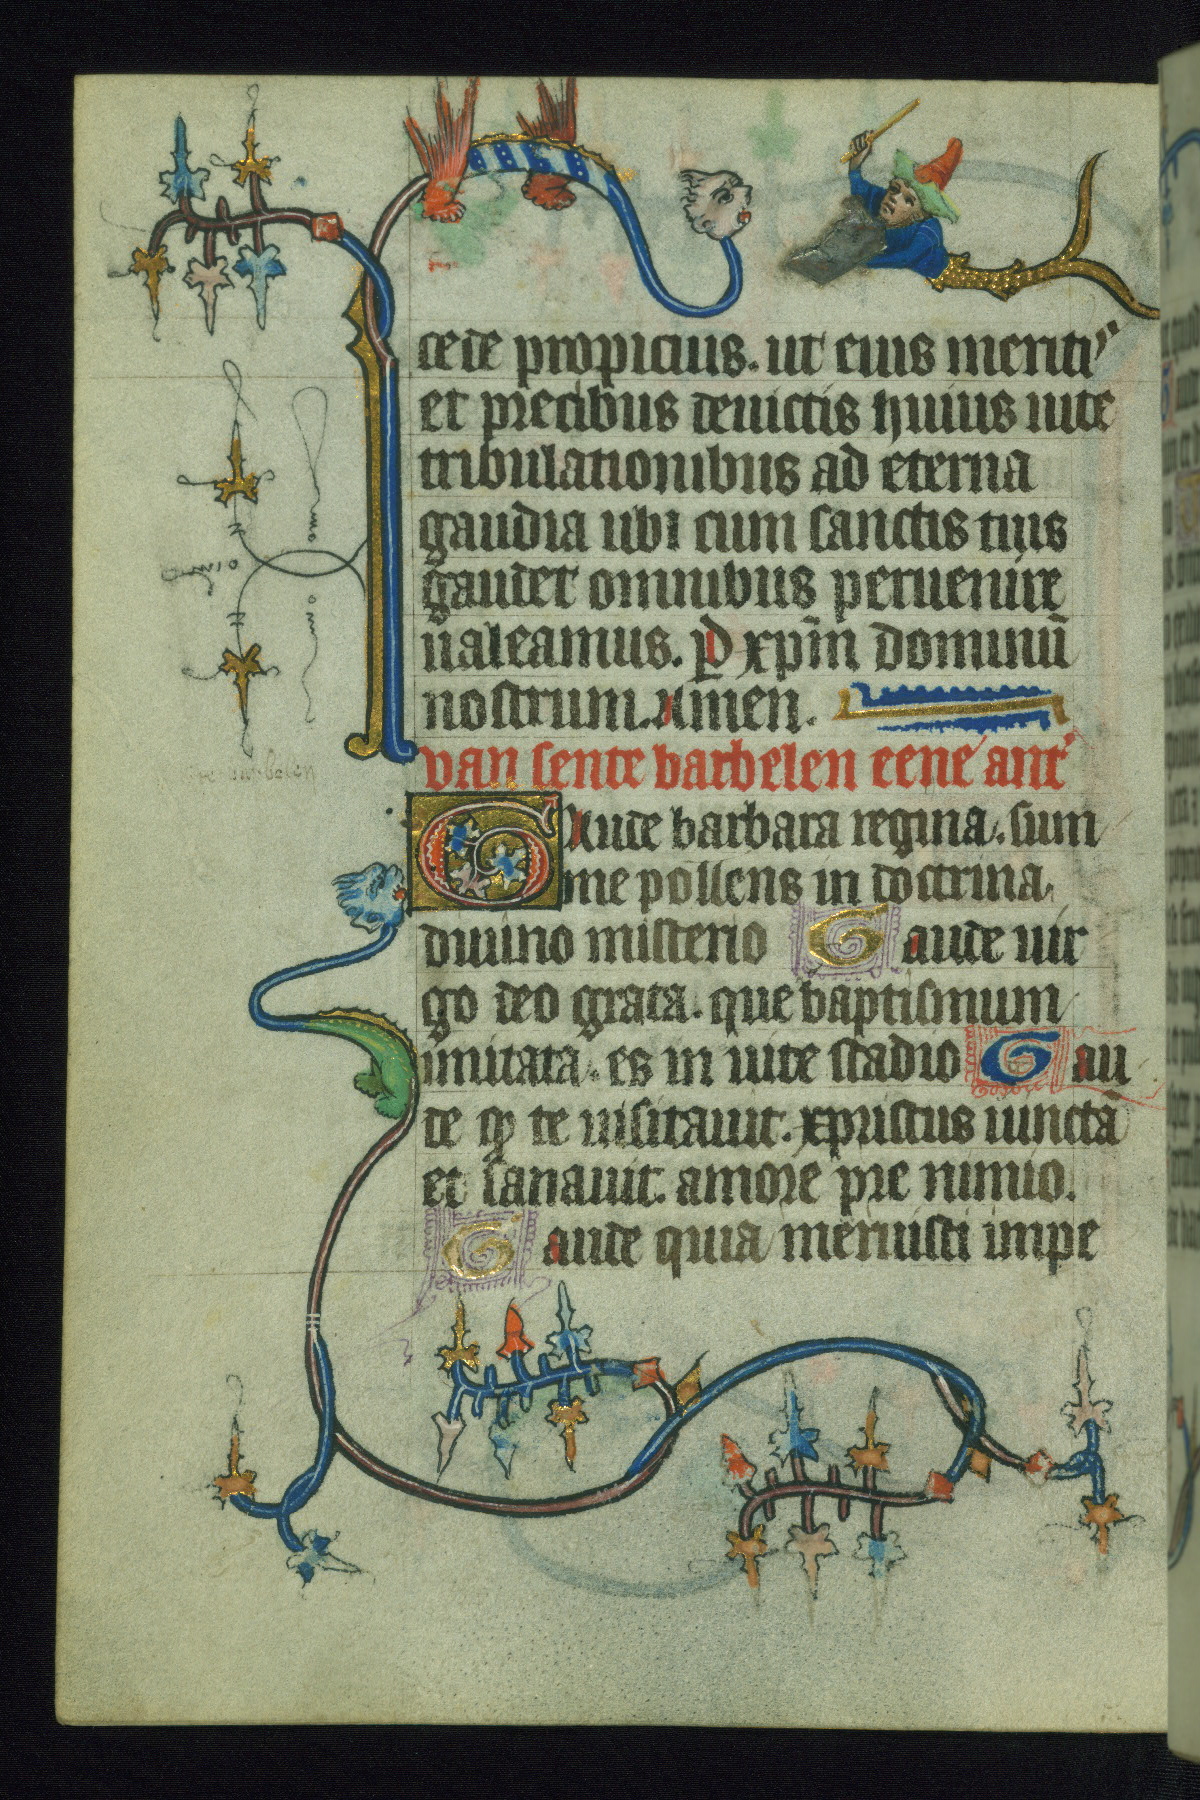 cede propicius. ut eius meritis
et precibus deuictis huius uite
tribulationibus ad eterna
gaudia ubi cum sanctis tuis
gaudet omnibus peruenire
ualeamus. p̲d xp̄m dominū
nostrum. Amen.
van sente barbelen eene ant'
GAude barbara regina. sum
me pollens in doctrina.
diuino misterio Gaude uir
go deo grata. que baptismum
imitata. es in uite stadio Gau
de qꝫ te uisitauit. xpristus iunctā
et sanauit. amore pre nimio.
Gaude quia meruisti impe